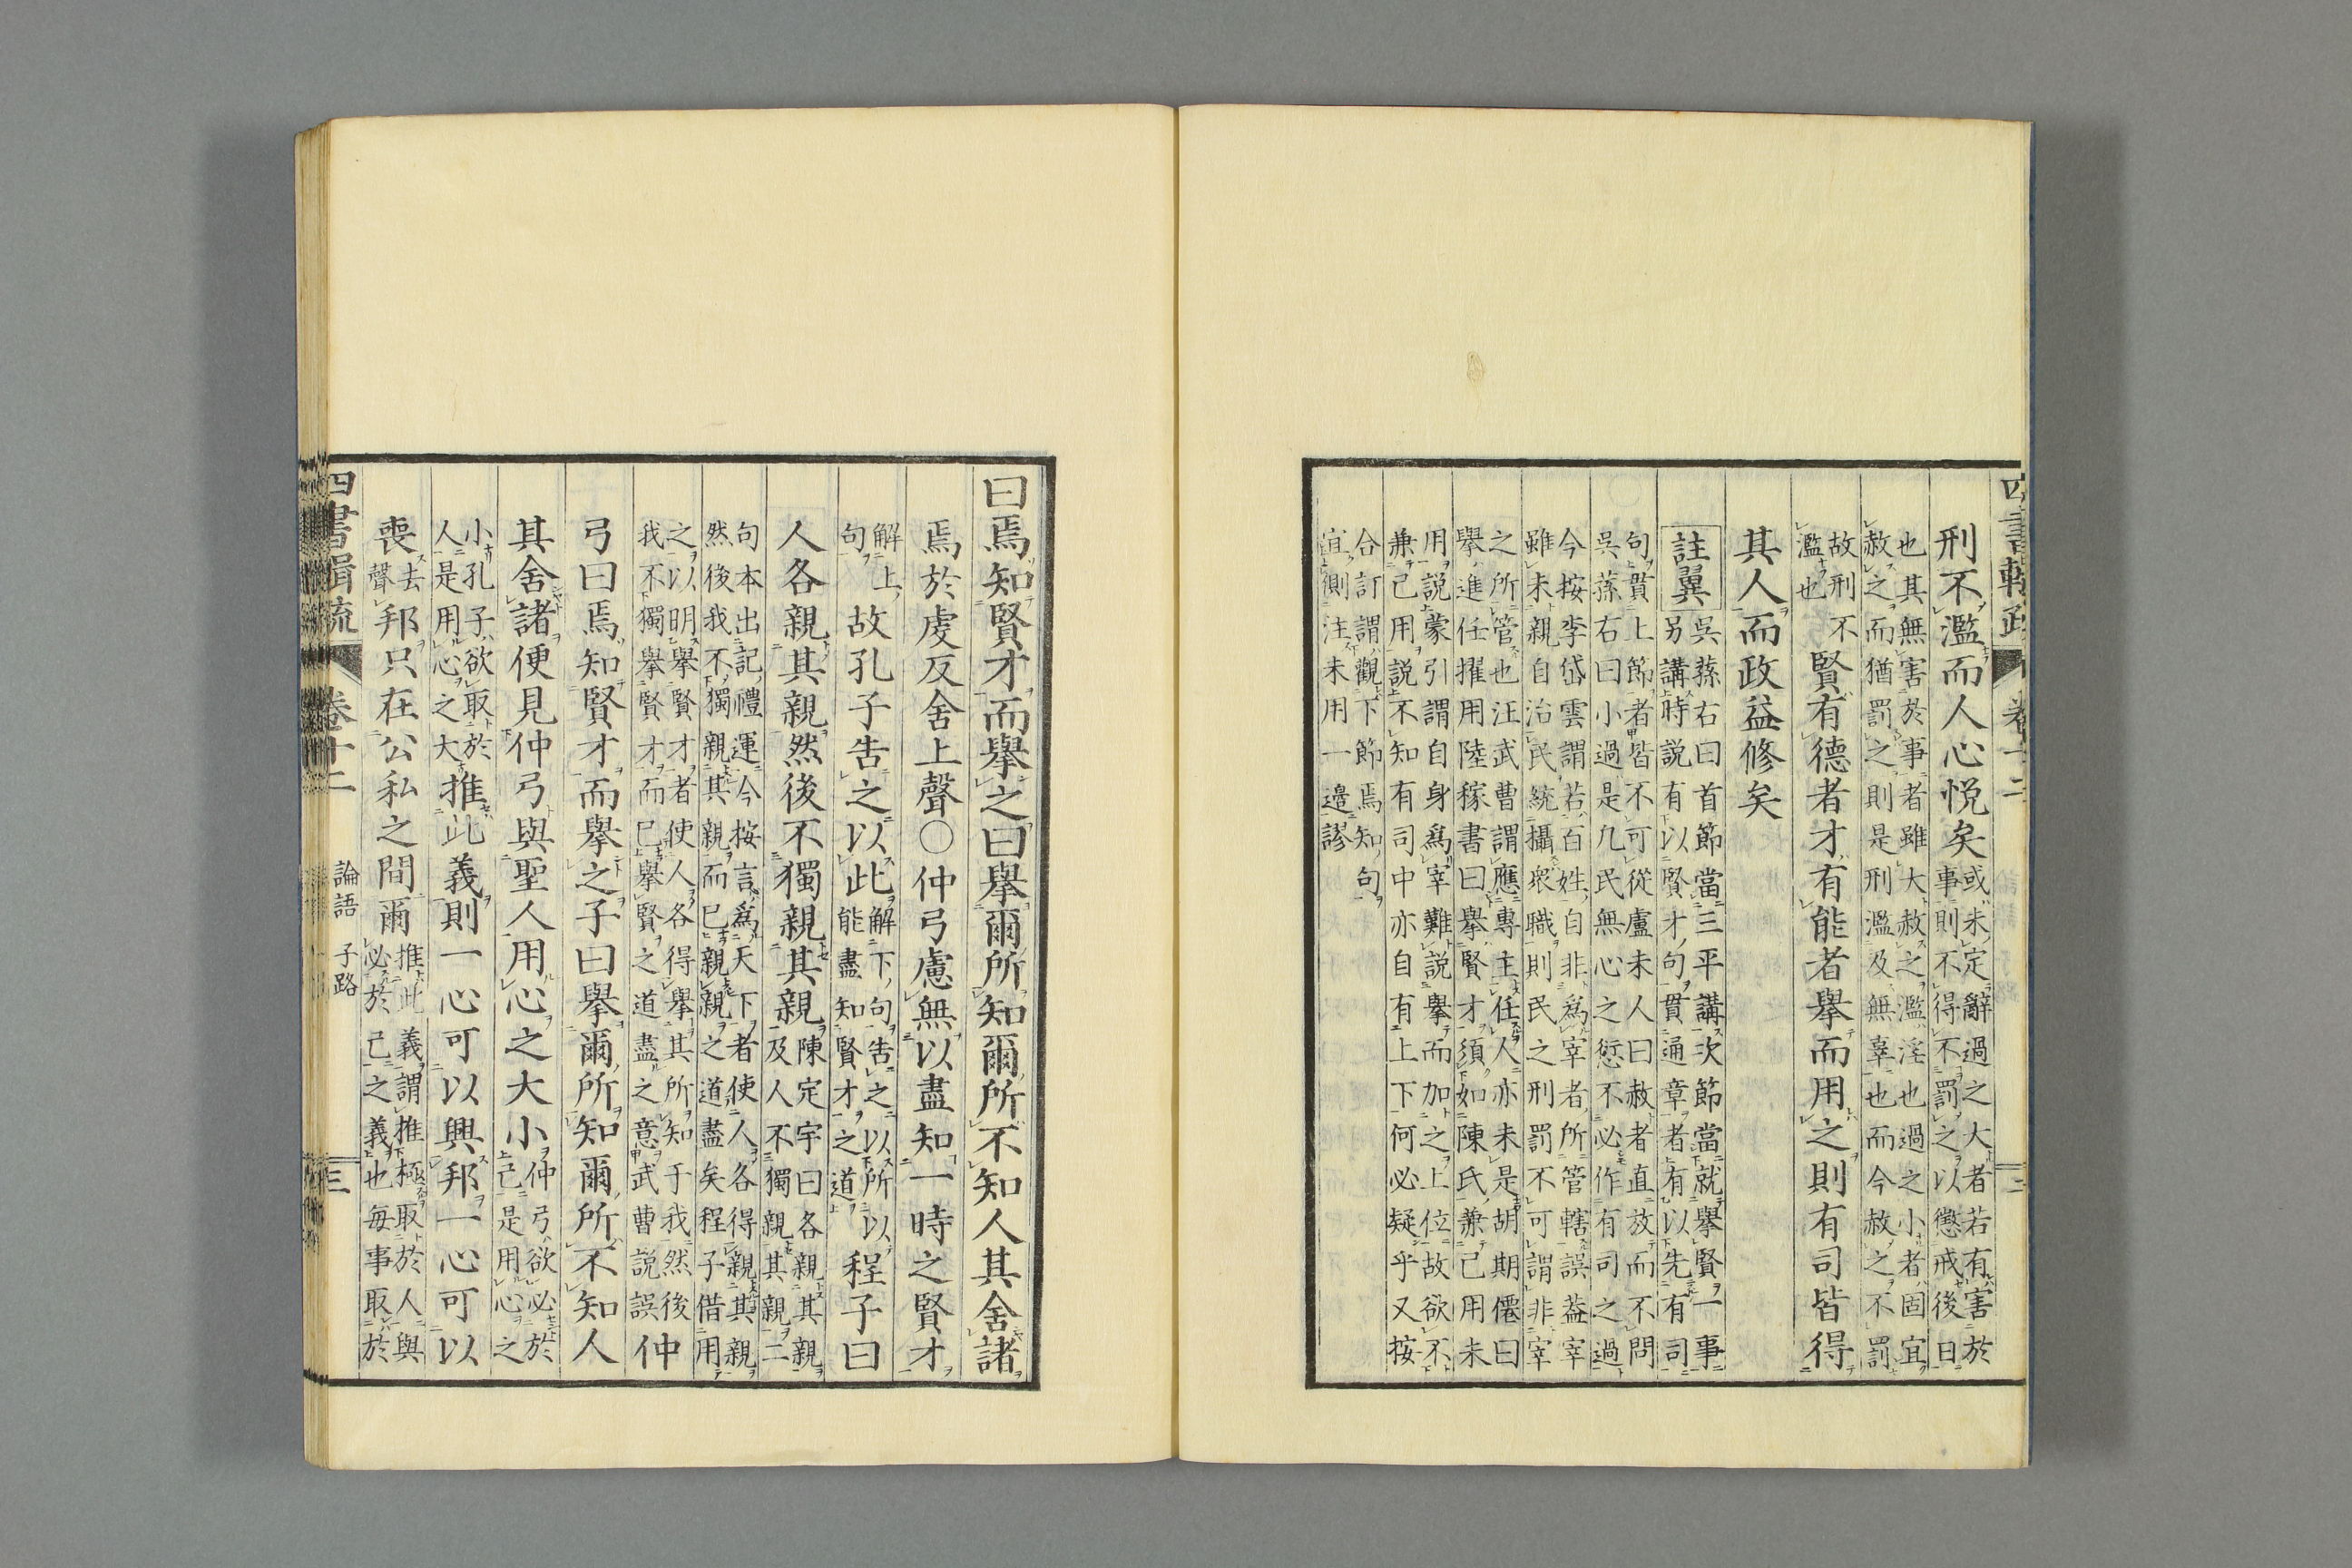 刑不濫而人心悅矣或未定辭過之大者若有害於事則不得不罰之以懲戒後日
也其無害於事者雖大赦之濫淫也過之小者固宜
赦之而猶罰之則是刑濫及無辜也而今赦之不罰
故刑不濫也賢有德者才有能者舉而用之則有司皆得
其人而政益修矣
註翼吳蓀右曰首節當三平講次節當就舉賢一事
另講時説有以賢才句貫通章者有以先有司
句貫上節者皆不可從盧未人曰赦者直放而不問
吳蓀右曰小過是凡民無心之愆不必作有司之過
今按李岱雲謂若百姓自非爲宰者所管轄誤葢宰
雖未親自治民統攝衆職則民之刑罰不可謂非宰
之所管也汪武曹謂應專主任人亦未是胡期僊曰
舉進任擢用陸稼書曰舉賢才須如陳氏兼己用未
用説蒙引謂自身爲宰難説舉而加之上位故欲不
兼己用説不知有司中亦自有上下何必疑乎又按
合訂謂觀下節焉知句
宜側注未用一邊謬
曰焉知賢才而舉之曰舉爾所知爾所不知人其舍諸
焉於虔反舍上聲○仲弓慮無以盡知一時之賢才
解上句故孔子吿之以此解下句吿之以所以能盡知賢才之道程子曰
人各親其親然後不獨親其親陳定宇曰各親其親及人不獨親其親二
句本出記禮運今按言爲天下者使人各得親其親
然後我不獨親其親而已親親之道盡矣程子借用
之以明舉賢才者使人各得舉其所知于我然後
我不獨舉賢才而已舉賢之道盡之意武曹説誤仲
弓曰焉知賢才而舉之子曰舉爾所知爾所不知人
其舍諸便見仲弓與聖人用心之大小仲弓欲必於己是用心之
小孔子欲取於人是用心之大推此義則一心可以興邦一心可以
喪去聲邦只在公私之間爾推此義謂推極取於人與必於己之義也每事取於
四書輯疏 卷十二 論語 子路 三